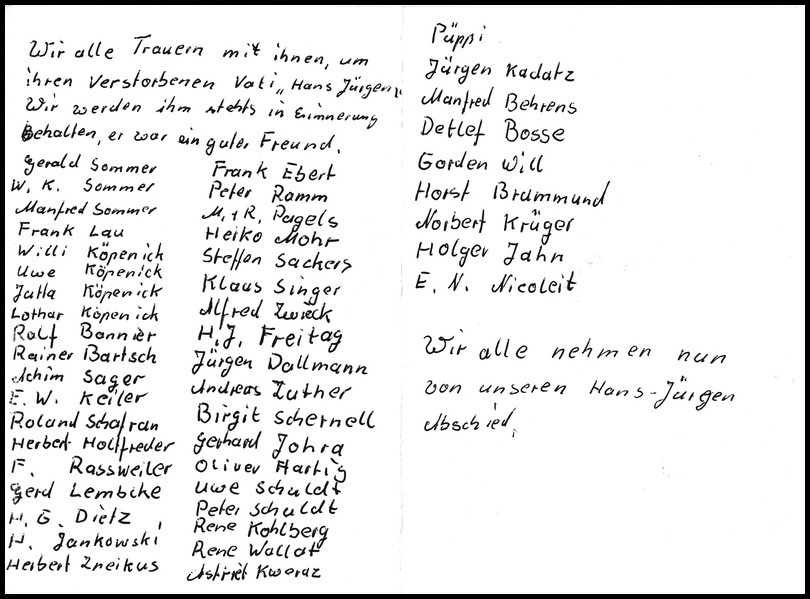 Wir alle Trauern mit ihnen, um
ihren Verstorbenen Vati „Hans Jürgen".
Wir werden ihm stehts in Erinnerung
Behalten, er war ein guter Freund.
Gerald Sommer
W. K. Sommer
Manfred Sommer
Frank Lau
Willi Köpenick
Uwe Köpenick
Jutta Köpenick
Lothar Köpenick
Ralf Bannier
Rainer Bartsch
Achim Sager
E. W. Keiler
Roland Schafran
Herbert Holtfreder
F. Rassweiler
Gerd Lembcke
H. G. Dietz
H. Jankowski
Herbert Zneikus
Frank Ebert
Peter Ramm
M. + R. Pagels
Heiko Mohr
Steffen Sackers
Klaus Singer
Alfred Zwieck
H. J. Freitag
Jürgen Dallmann
Andreas Luther
Birgit Schernell
Gerhard Johra
Oliver Hartig
Uwe Schuldt
Peter Schuldt
Rene Kohlberg
Rene Wallat
Püppi
Jürgen Kadatz
Manfred Behrens
Detlef Bosse
Gorden Will
Horst Brummund
Norbert Krüger
Holger Jahn
E. N. Nicoleit
Wir alle nehmen nun
von unseren Hans-Jürgen
Abschied.